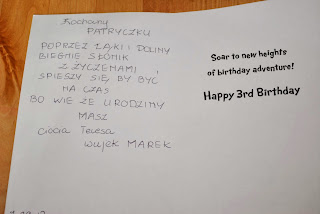 Kochany
PATRYCZKU
POPRZEZ ŁĄKI I DOLINY
BIEGNIE SŁONIK
Z ŻYCZENIAMI,
SPIESZY SIĘ BY BYĆ
NA CZAS
BO WIE ŻE URODZINY
MASZ
Ciocia Teresa
wujek MAREK
Soar to new heights
of birthday adventure!
Happy 3rd Birthday